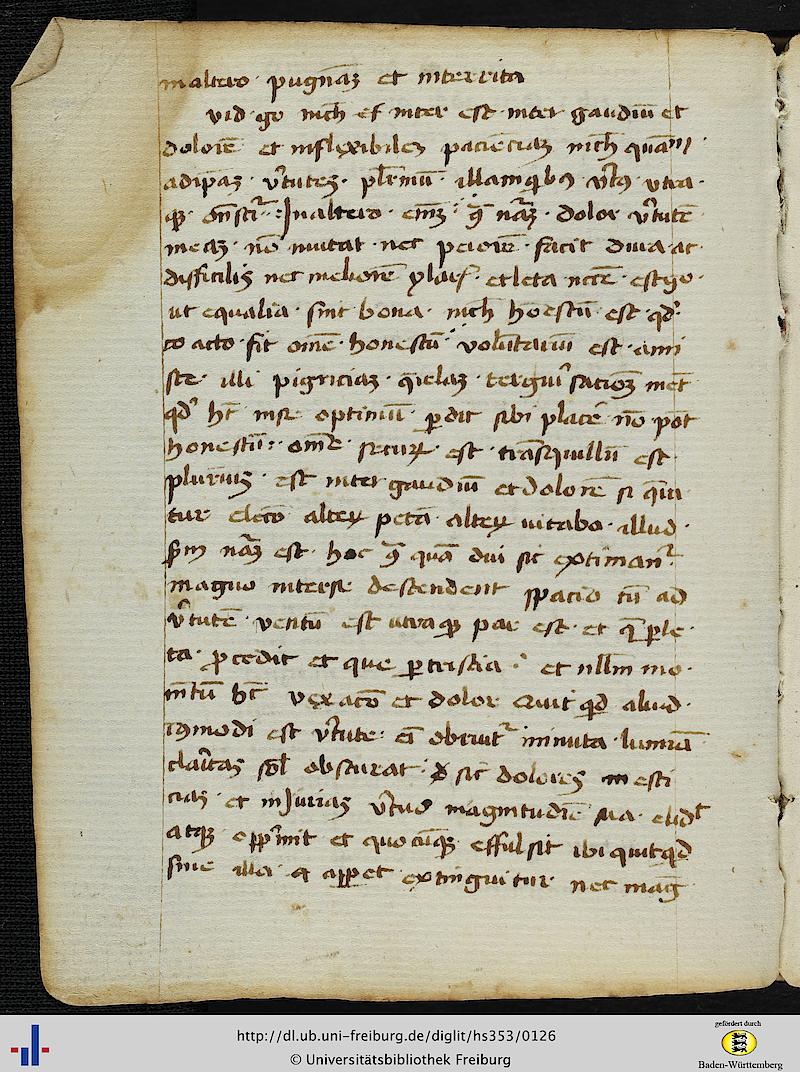 in altero pugnãs et interrita
vid go nich est inter est inter gaudiũ et
dolorẽ et inflexibilẽ pacienciaz nich quam
adipaz v̓tutez plrimũ illam vtra
In altero em̃ gͦ nãz dolor v̓tutẽ
meaz nõ mutat nec peiorẽ facit dura ac
difficilis nec meliorẽ et leta ncc̃e est go
ut equalia sint bona nich hoestũ est qd̓
fit om̃e honestũ volũtariũ est
illi pigriciaz q̃relaz
qd̓ ht̃ in se optimũ p̱dit sibi placẽ nõ pot
honestũ om̃e securꝝ est trãsquillũ est
est inter gaudiũ et dolorẽ si q̃ri
tur alterꝝ petã alterꝝ vitabo illud
sm̃ nãz est hoc gͦ quã dui sit extimant᷑
magno inter se descendent spacio cũ ad
v̓tutẽ ventũ est utraqꝫ par est et q̃ p̱ le
ta p̱cedit et que p̱ tristia et nllm̃ mo
mẽtũ ht̃ vexacõ et dolor quit qd aliud
modi est v̓tute eĩ obruit᷑ minuta luminã
claritas sol obscurat sic dolores mesti
cias et inJurias v̓tus magnitudĩe sua elidit
atqꝫ opp̓mit et quocũqꝫ effulsit ibi quitqd
sine illa apparet extinguitur nec mag̃
http://dl.ub.uni-freiburg.de/diglit/hs353/0126
© Universitätsbibliothek Freiburg
gefördert durch
Baden-Württemberg